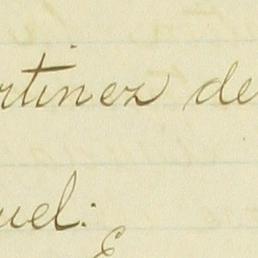 rtinez de
uel:
E